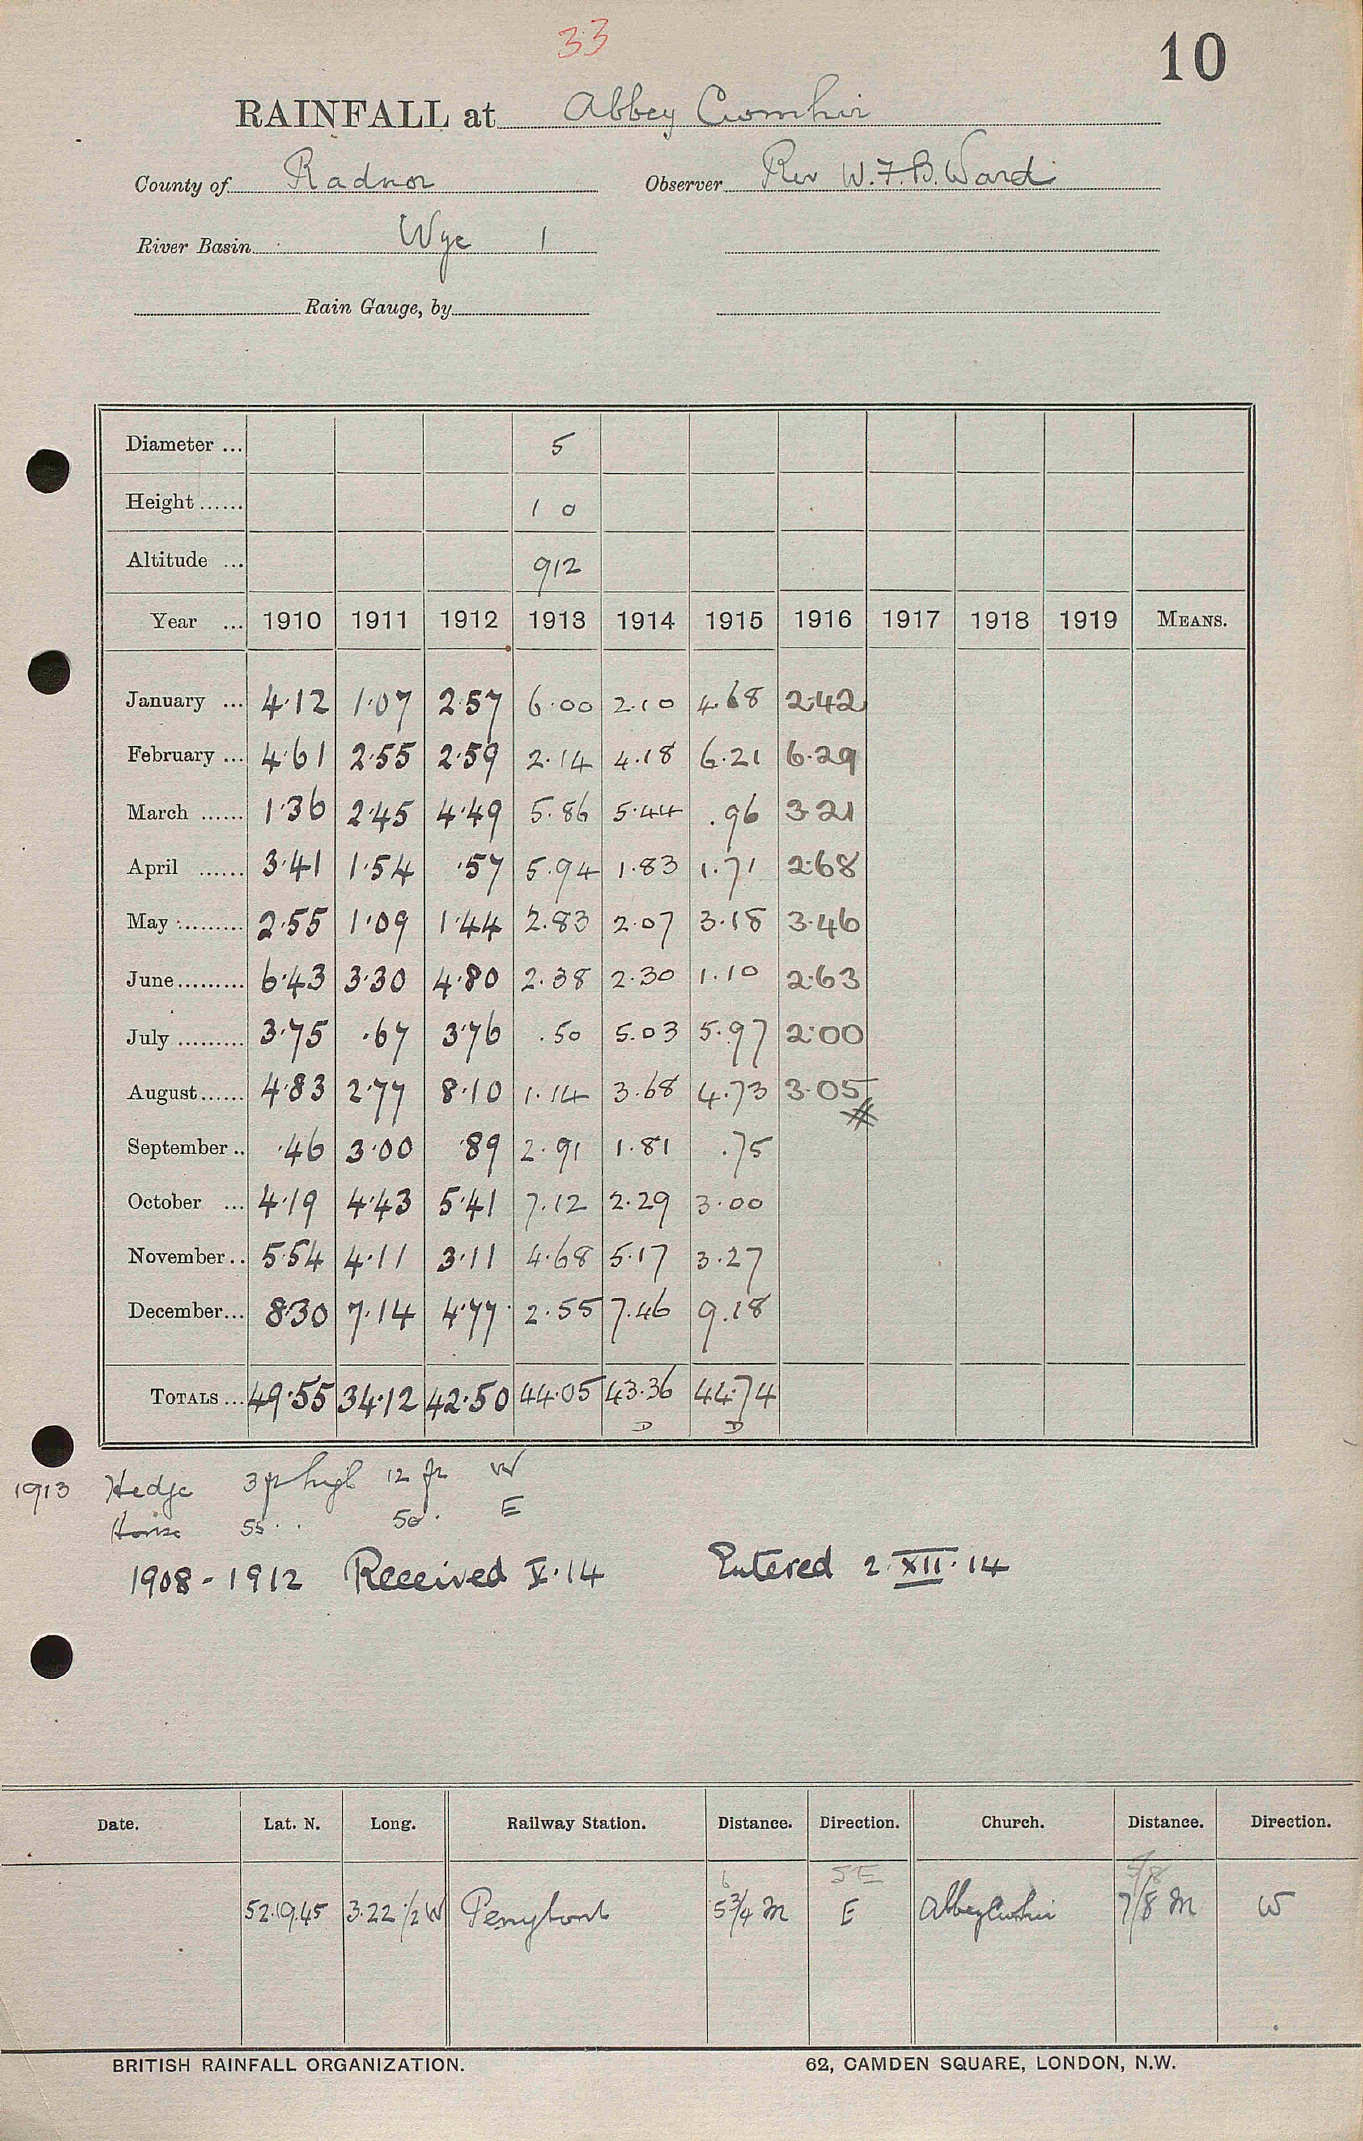 33
10
RAINFALL at Abbey Cwmhir
County of Radnor Observer Rev W.F.B. Ward
River Basin Wye 1
Rain Gauge, by
Diameter ... 5
Height ...... 1 0
Altitude ... 912
Year ... 1910 1911 1912 1913 1914 1915 1916 1917 1918 1919 MEANS.
January ... 4·12 1·07 2·57 6·00 2·10 4·68 2·42
February ... 4·61 2·55 2·59 2·14 4·18 6·21 6·29
March ...... 1·36 2·45 4·49 5·86 5·44 ·96 3·21
April ...... 3·41 1·54 ·57 5·94 1·83 1·71 2·68
May ......... 2·55 1·09 1·44 2·83 2·07 3·18 3·46
June ......... 6·43 3·30 4·80 2·38 2·30 1·10 2·63
July ......... 3·75 ·67 3·76 ·50 5·03 5·97 2·00
August ...... 4·83 2·77 8·10 1·14 3·68 4·73 3·05
#
September .. ·46 3·00 ·89 2·91 1·81 ·75
October ... 4·19 4·43 5·41 7·12 2·29 3·00
November .. 5·54 4·11 3·11 4·68 5·17 3·27
December ... 8·30 7·14 4·77 2·55 7·46 9·18
TOTALS ... 49·55 34·12 42·50 44·05 43·36 44·74
D D
1913 Hedge 3 ft high 12 ft W
House 55 · · 50 · E
1908 - 1912 Received V·14 Entered 2·XII·14
Date. Lat. N. Long. Railway Station. Distance. Direction. Church. Distance. Direction.
6 SE 5/8
52.19.45 3.22 1/2 W Penybont 5 3/4 M E Abbey Cwmhir 7/8 M W
BRITISH RAINFALL ORGANIZATION. 62, CAMDEN SQUARE, LONDON, N.W.